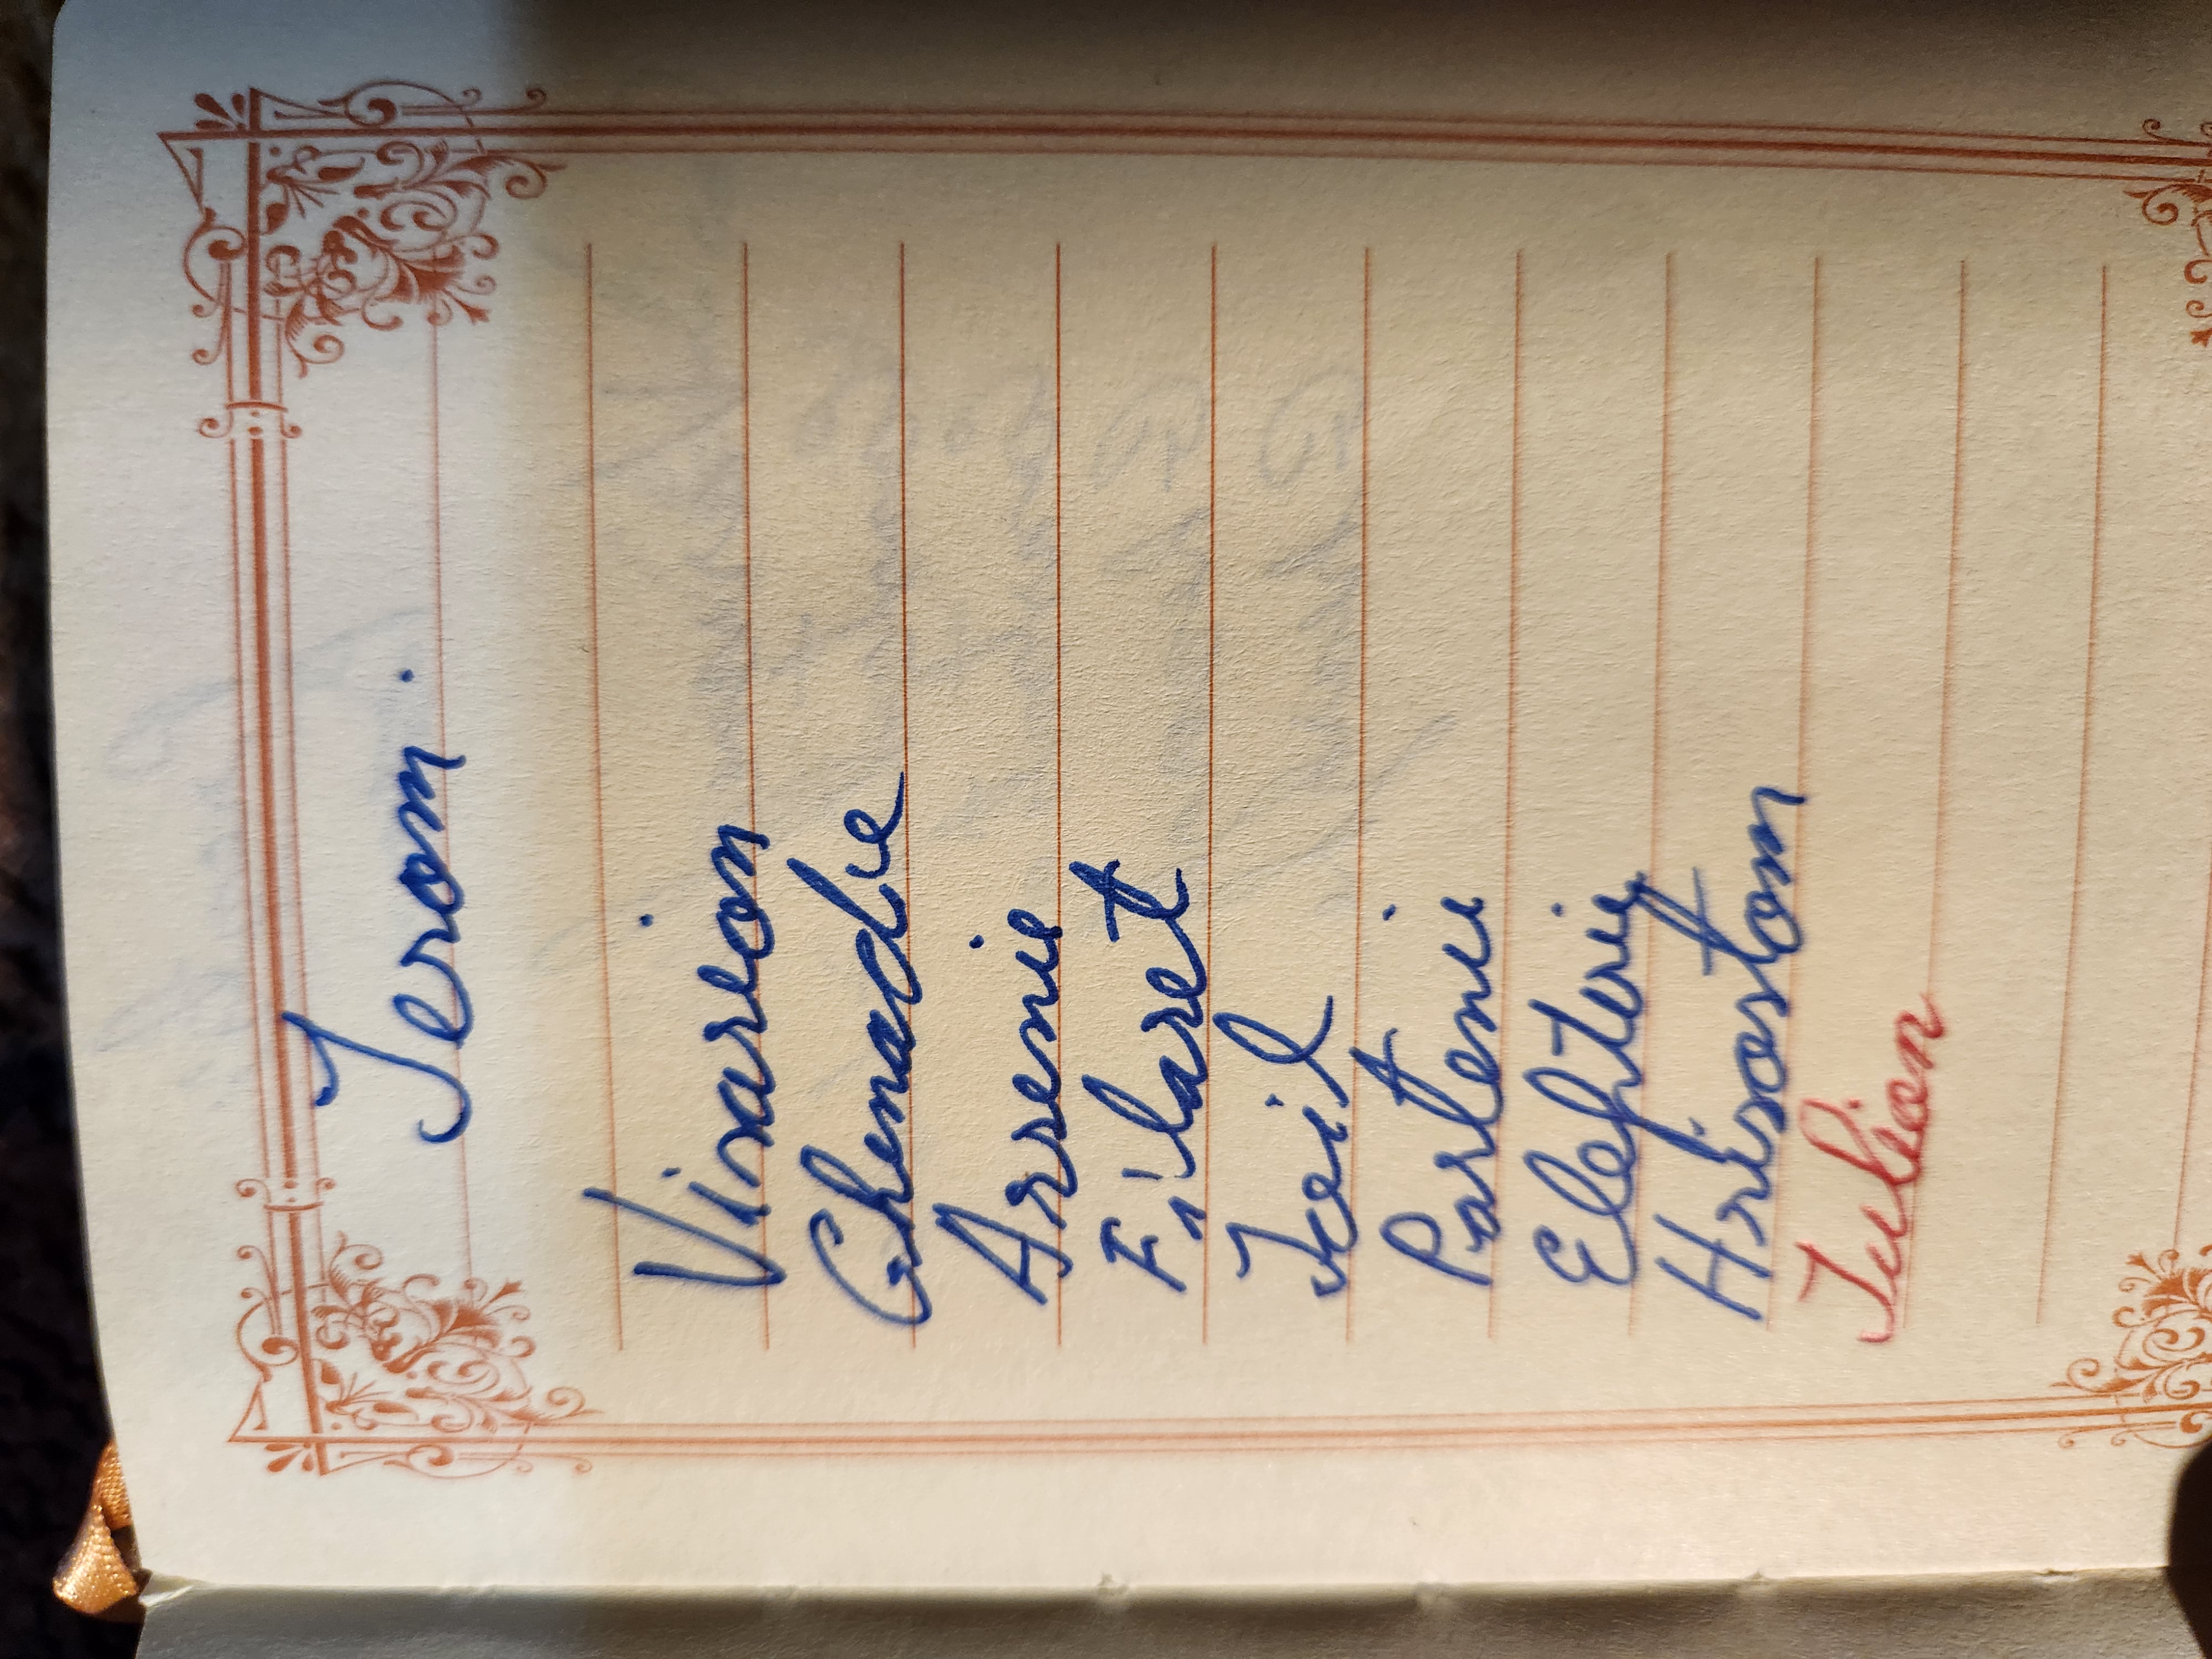 Ierom.
Visarion
Ghenadie
Arsenie
Filaret
Ioil
Partenie
Elefterie
Hrisostom
Iulian